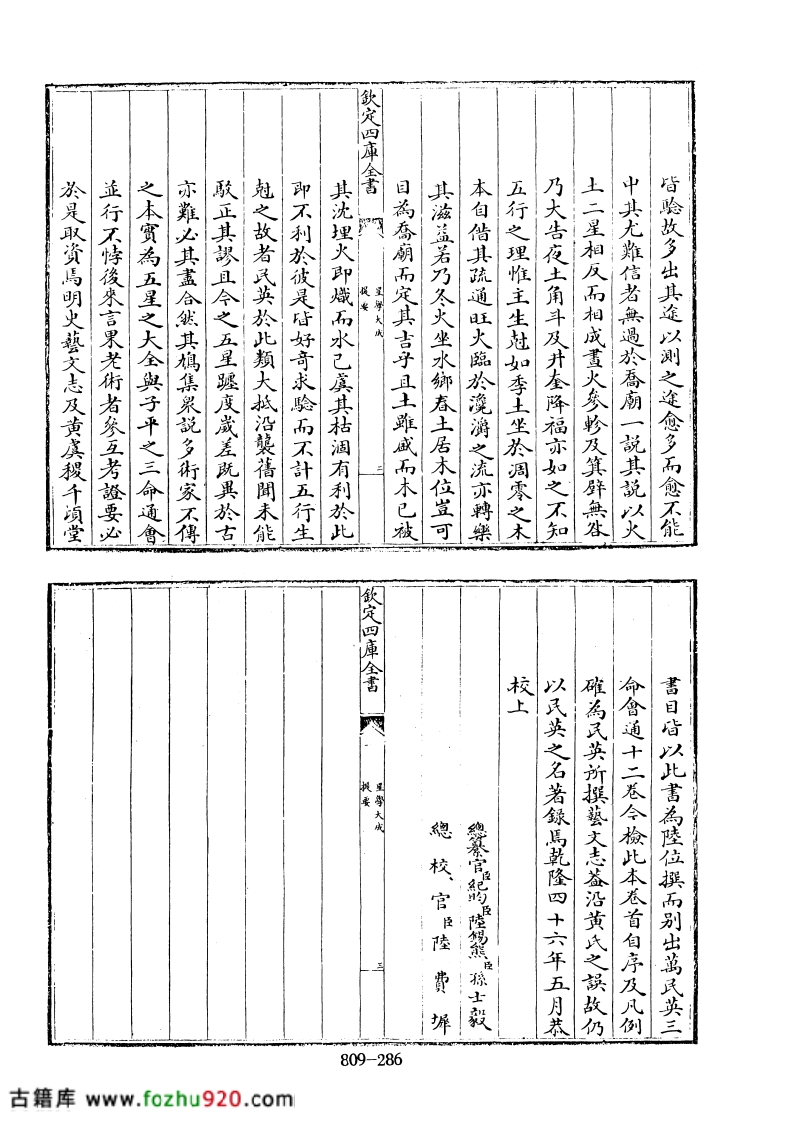 皆驗故多出其途以測之途愈多而愈不能
中其尤難信者無過於喬廟一説其説以火
土二星相反而相成晝火參軫及箕壁無咎
乃大吉夜土角斗及井奎降福亦如之不知
五行之理惟主生尅如季土坐於凋零之木
本自借其疏通旺火臨於瀺灂之流亦轉樂
其滋益若乃冬火坐水鄉春土居木位豈可
目為喬廟而定其吉乎且土雖盛而木已被
欽定四庫全書
星學大成
提要
二
其沈埋火即熾而水已虞其枯涸有利於此
即不利於彼是皆好奇求驗而不計五行生
尅之故者民英於此類大抵沿襲舊聞未能
駁正其謬且今之五星躔度歲差既異於古
亦難必其盡合然其鳩集衆説多術家不傳
之本實為五星之大全與子平之三命通會
並行不悖後來言果老術者參互考證要必
於是取資焉明史藝文志及黃虞稷千頃堂
書目皆以此書為陸位撰而别出萬民英三
命會通十二卷今檢此本卷首自序及凡例
確為民英所撰藝文志葢沿黃氏之誤故仍
以民英之名著録焉乾隆四十六年五月恭
校上
總纂官臣紀昀臣陸錫熊臣孫士毅
總校官臣陸費墀
欽定四庫全書
星學大成
提要
三
809-286
古籍库 www.fozhu920.com